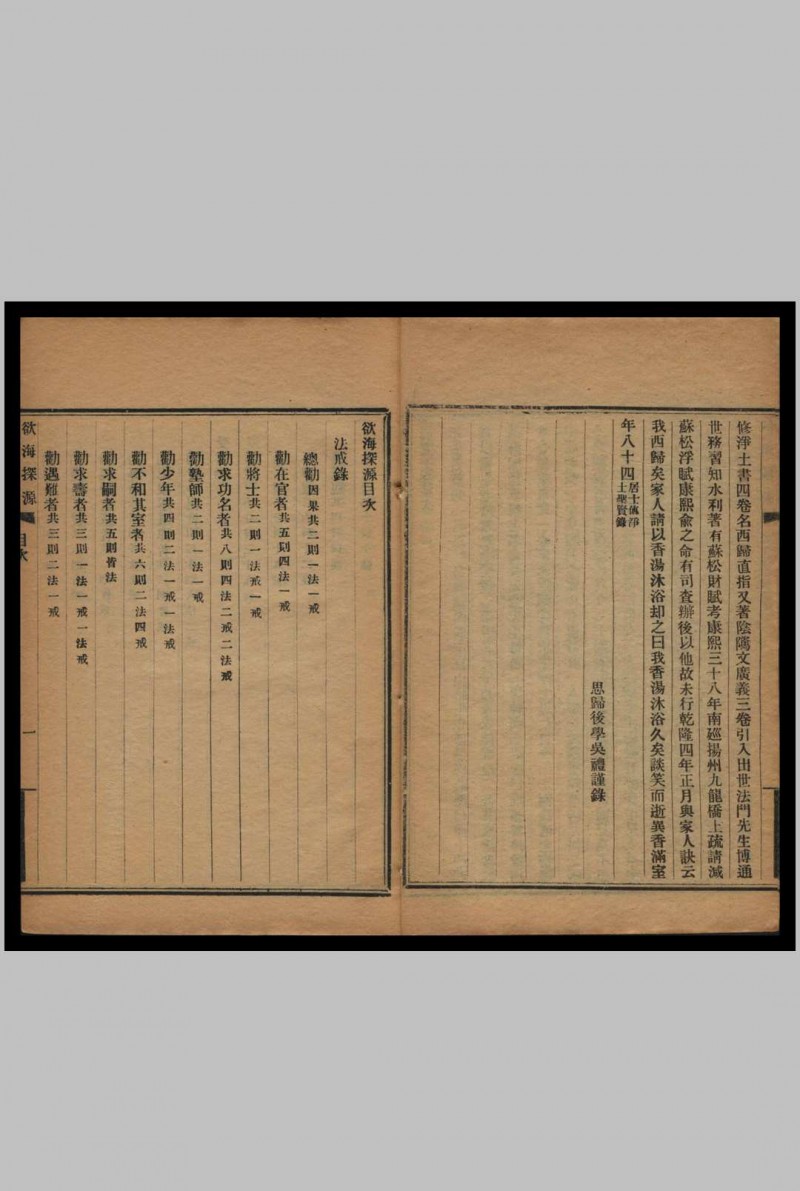 修淨土書四卷名西歸直指又著陰隲文廣義三卷引入出世法門先生博通
世務習知水利著有蘇松財賦考康熙三十八年南廵揚州九龍橋上疏請減
蘇松浮賦康熙兪之命有司查辦後以他故未行乾隆四年正月與家人訣云
我西歸矣家人請以香湯沐浴却之曰我香湯沐浴久矣談笑而逝異香滿室
年八十四居士傳淨土聖賢錄
思歸後學吳禮謹錄
欲海探源目次
法戒錄
總勸因果共二則一法一戒
勸在官者共五則四法一戒
勸將士共二則一法戒一戒
勸求功名者共八則四法二戒二法戒
勸塾師共二則一法一戒
勸少年共四則二法一戒一法戒
勸不和其室者共六則二法四戒
勸求嗣者共五則皆法
勸求壽者共三則一法一戒一法戒
勸遇難者共三則二法一戒
欲海探源 目次 一